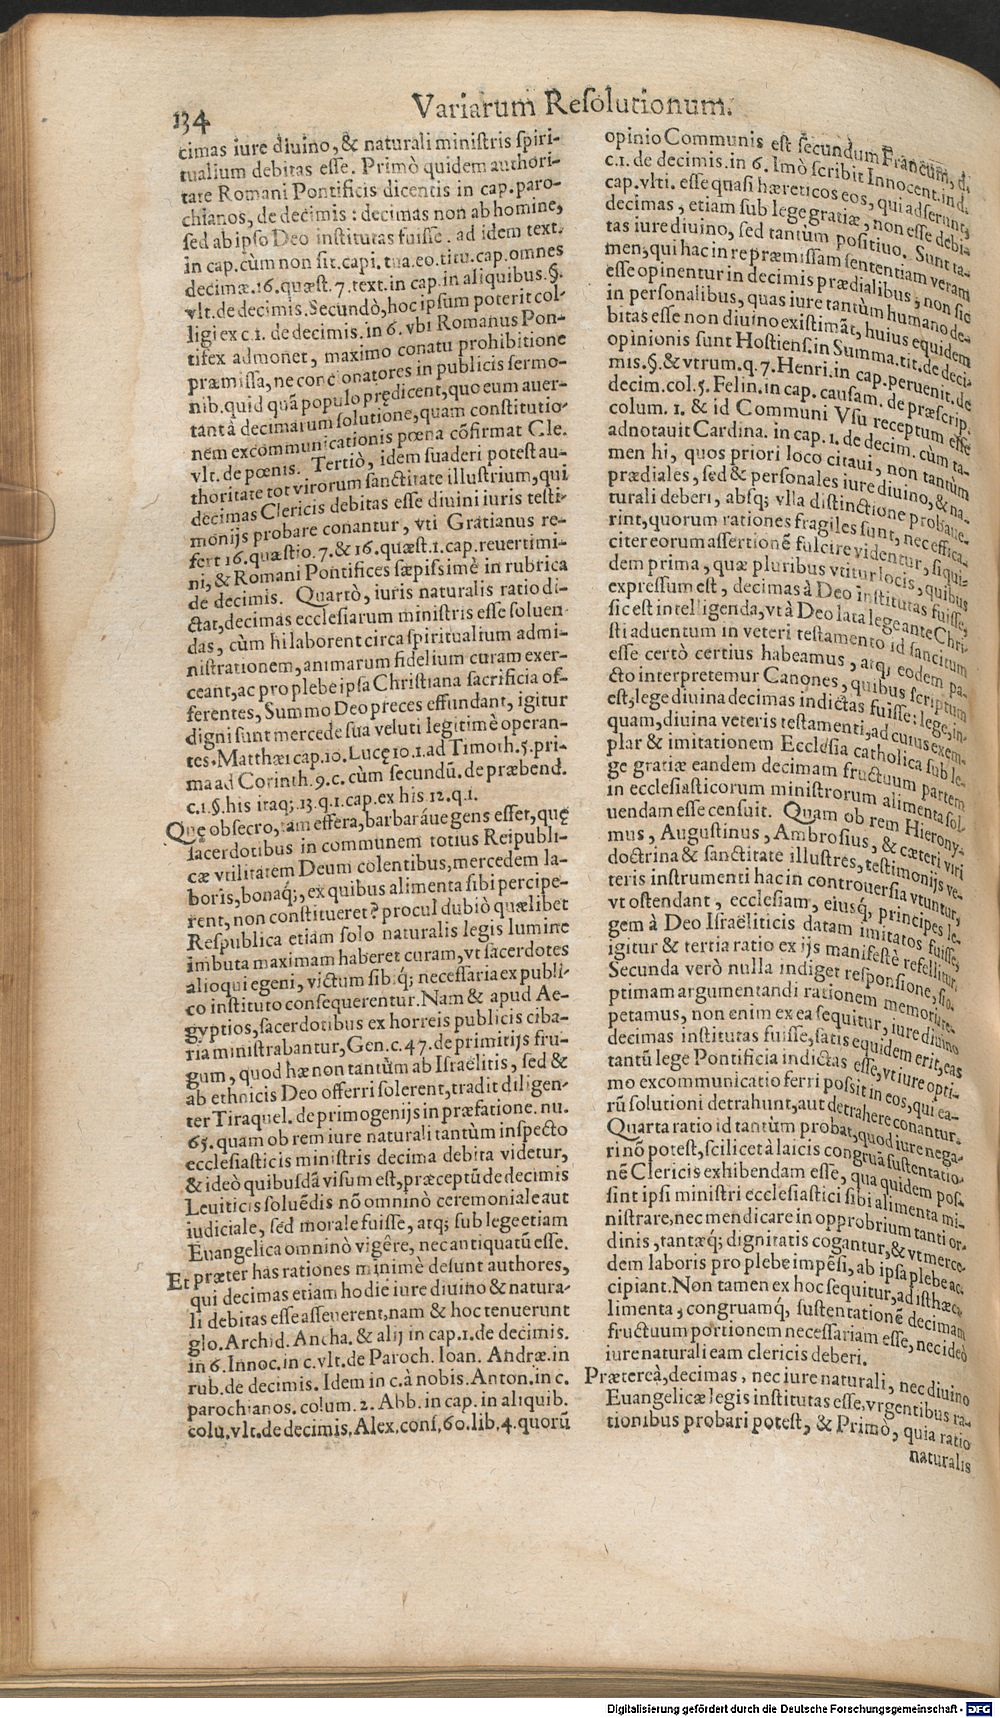 134
Variarum Resolutionum.
cimas iure diuino, & naturali ministris spiri-
tualium debitas esse. Primò quidem authori-
tate Romani Pontificis dicentis in cap. paro-
chianos, de decimis : decimas non ab homine,
sed ab ipso Deo institutas fuisse. ad idem text.
in cap. cùm non sit. capi. tua. eo. titu. cap. omnes
decimæ. 16. quæst. 7. text. in cap. in aliquibus. §.
vlt. de decimis. Secundò, hoc ipsum poterit col-
ligi ex c. 1. de decimis. in 6. vbi Romanus Pon-
tifex admonet, maximo conatu prohibitione
præmissa, ne concionatores in publicis sermo-
nib. quid quã populo prędicent, quo eum auer-
tant à decimarum solutione, quam constitutio-
nem excommunicationis pœna cõfirmat Cle.
vlt. de pœnis. Tertiò, idem suaderi potest au-
thoritate tot virorum sanctitate illustrium, qui
decimas Clericis debitas esse diuini iuris testi-
monijs probare conantur, vti Gratianus re-
fert 16. quæstio. 7. & 16. quæst. 1. cap. reuertimi-
ni, & Romani Pontifices sæpissimè in rubrica
de decimis. Quartò, iuris naturalis ratio di-
ctat, decimas ecclesiarum ministris esse soluen
das, cùm hi laborent circa spiritualium admi-
nistrationem, animarum fidelium curam exer-
ceant, ac pro plebe ipsa Christiana sacrificia of-
ferentes, Summo Deo preces effundant, igitur
digni sunt mercede sua veluti legitimè operan-
tes. Matthæi cap. 10. Lucę 10. 1. ad Timoth. 5. pri-
ma ad Corinth. 9. c. cùm secundũ. de præbend.
c. 1. §. his itaq; 13. q. 1. cap. ex his 12. q. 1.
Quę obsecro, tam effera, barbaráue gens esset, quę
sacerdotibus in communem totius Reipubli-
cæ vtilitatem Deum colentibus, mercedem la-
boris, bonaq́;, ex quibus alimenta sibi percipe-
rent, non constitueret? procul dubiò quælibet
Respublica etiam solo naturalis legis lumine
imbuta maximam haberet curam, vt sacerdotes
alioqui egeni, victum sibiq́; necessaria ex publi-
co instituto consequerentur. Nam & apud Ae-
gyptios, sacerdotibus ex horreis publicis ciba-
ria ministrabantur, Gen. c. 47. de primitijs fru-
gum, quod hæ non tantùm ab Israëlitis, sed &
ab ethnicis Deo offerri solerent, tradit diligen-
ter Tiraquel. de primogenijs in præfatione. nu.
65. quam ob rem iure naturali tantùm inspecto
ecclesiasticis ministris decima debita videtur,
& ideò quibusdã visum est, præceptũ de decimis
Leuiticis soluẽdis nõ omninò ceremoniale aut
iudiciale, sed morale fuisse, atq; sub lege etiam
Euangelica omninò vigêre, nec antiquatũ esse.
Et præter has rationes minimè desunt authores,
qui decimas etiam hodie iure diuino & natura-
li debitas esse asseuerent, nam & hoc tenuerunt
glo. Archid. Ancha. & alij in cap. 1. de decimis.
in 6. Innoc. in c. vlt. de Paroch. Ioan. Andræ. in
rub. de decimis. Idem in c. à nobis. Anton. in c.
parochianos. colum. 2. Abb. in cap. in aliquib.
colu. vlt. de decimis, Alex. cons. 60. lib. 4. quorũ
opinio Communis est secundùm Francum, d.
c. 1. de decimis. in 6. Imò scribit Innocent. in d.
cap. vlti. esse quasi hæreticos eos, qui adserunt,
decimas, etiam sub lege gratiæ, non esse debi-
tas iure diuino, sed tantùm positiuo. Sunt ta-
men, qui hac in re præmissam sententiam veram
esse opinentur in decimis prædialibus, non sic
in personalibus, quas iure tantùm humano de-
bitas esse non diuino existimãt, huius equidem
opinionis sunt Hostiens. in Summa. tit. de deci-
mis. §. & vtrum. q. 7. Henri. in cap. peruenit. de
decim. col. 5. Felin. in cap. causam. de præscrip.
colum. 1. & id Communi Vsu receptum esse
adnotauit Cardina. in cap. 1. de decim. cùm ta-
men hi, quos priori loco citaui, non tantùm
prædiales, sed & personales iure diuino, & na-
turali deberi, absq; vlla distinctione probaue-
rint, quorum rationes fragiles sunt, nec effica-
citer eorum assertionẽ fulcire videntur, siqui-
dem prima, quæ pluribus vtitur locis, quibus
expressum est, decimas à Deo institutas fuisse,
sic est intelligenda, vt à Deo lata lege ante Chri-
sti aduentum in veteri testamento id sancitum
esse certò certius habeamus, atq; eodem pa-
cto interpretemur Canones, quibus scriptum
est, lege diuina decimas indictas fuisse: lege, in-
quam, diuina veteris testamenti, ad cuius exem-
plar & imitationem Ecclesia catholica sub le-
ge gratiæ eandem decimam fructuum partem
in ecclesiasticorum ministrorum alimenta sol-
uendam esse censuit. Quam ob rem Hierony-
mus, Augustinus, Ambrosius, & cæteri viri
doctrina & sanctitate illustres, testimonijs ve-
teris instrumenti hac in controuersia vtuntur,
vt ostendant, ecclesiam, eiusq́, principes le-
gem à Deo Israëliticis datam imitatos fuisse,
igitur & tertia ratio ex ijs manifestè refellitur.
Secunda verò nulla indiget responsione, si o-
ptimam argumentandi rationem memoriæ re-
petamus, non enim ex ea sequitur, iure diuino
decimas institutas fuisse, satis equidem erit, eas
tantũ lege Pontificia indictas esse, vt iure opti-
mo excommunicatio ferri possit in eos, qui ea-
rũ solutioni detrahunt, aut detrahere conantur.
Quarta ratio id tantùm probat, quod iure nega-
ri nõ potest, scilicet à laicis congruã sustentatio-
nẽ Clericis exhibendam esse, qua quidem pos-
sint ipsi ministri ecclesiastici sibi alimenta mi-
nistrare, nec mendicare in opprobrium tanti or-
dinis, tantæq́; dignitatis cogantur, & vt merce-
dem laboris pro plebe impẽsi, ab ipsa plebe ac-
cipiant. Non tamen ex hoc sequitur, ad isthæc a-
limenta, congruamq́, sustentationẽ decimam
fructuum portionem necessariam esse, nec ideò
iure naturali eam clericis deberi.
Prætereà, decimas, nec iure naturali, nec diuino
Euangelicæ legis institutas esse, vrgentibus ra-
tionibus probari potest, & Primò, quia ratio
naturalis
Digitalisierung gefördert durch die Deutsche Forschungsgemeinschaft - DFG